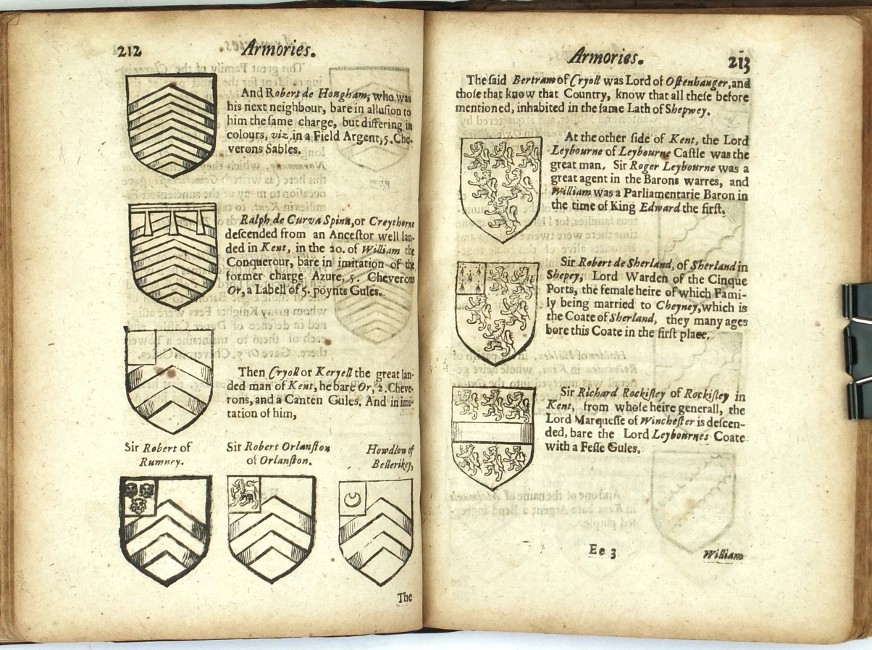 212 Armories.
And Robert de Hougham, who was
his next neighbour, bare in allusion to
him the same charge, but differing in
colours, viz. in a Field Argent, 5. Che-
verons Sables.
Ralph de Curva Spina, or Creythorne
descended from an Ancestor well lan-
ded in Kent, in the 20. of William the
Conquerour, bare in imitation of the
former charge Azure, 5. Cheverons
Or, a Labell of 5. poynts Gules.
Then Cryoll or Keryell the great lan-
ded man of Kent, he bare Or, 2. Cheve-
rons, and a Canten Gules. And in imi-
tation of him,
Sir Robert of
Rumney.
Sir Robert Orlanston
of Orlanston.
Howdlow of
Bellerikey,
The
Armories. 213
The said Bertram of Cryoll was Lord of Ostenhanger, and
those that know that Country, know that all these before
mentioned, inhabited in the same Lath of Shepwey.
At the other side of Kent, the Lord
Leybourne of Leybourne Castle was the
great man. Sir Roger Leybourne was a
great agent in the Barons warres, and
William was a Parliamentarie Baron in
the time of King Edward the first.
Sir Robert de Sherland, of Sherland in
Shepey, Lord Warden of the Cinque
Ports, the female heire of which Fami-
ly being married to Cheyney, which is
the Coate of Sherland, they many ages
bore this Coate in the first place.
Sir Richard Rockisley of Rockisley in
Kent, from whose heire generall, the
Lord Marquesse of Winchester is descen-
ded, bare the Lord Leybournes Coate
with a Fesse Gules.
Ee 3 William